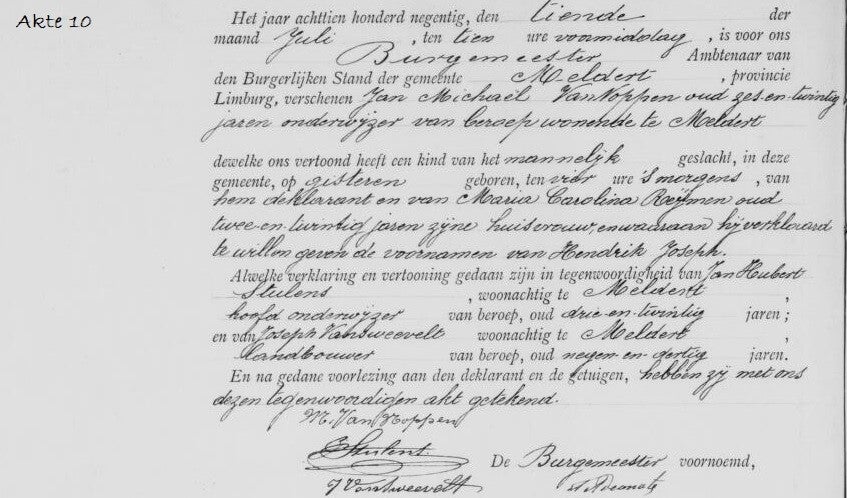 Akte 10
Het jaar achttien honderd negentig, den tiende der
maand Juli, ten tien ure voormiddag, is voor ons
Burgemeester Ambtenaar van
den Burgerlijken Stand der gemeente Meldert, provincie
Limburg, verschenen Jan Michaël VanNoppen oud zes-en-twintig
jaren onderwijzer van beroep wonende te Meldert
dewelke ons vertoond heeft een kind van het mannelijk geslacht, in deze
gemeente, op gisteren geboren, ten vier ure 's morgens, van
hem deklarant en van Maria Carolina Reijmen oud
twee-en-twintig jaren zijne huisvrouw en waaraan hij verklaard
te willen geven de voornamen van Hendrik Joseph.
Alwelke verklaring en vertooning gedaan zijn in tegenwoordigheid van Jan Hubert
Stulens, woonachtig te Meldert,
hoofd onderwijzer van beroep, oud drie-en-twintig jaren;
en van Joseph Vansweevelt woonachtig te Meldert
landbouwer van beroep, oud negen-en-dertig jaren.
En na gedane voorlezing aan den deklarant en de getuigen, hebben zij met ons
dezen tegenwoordigen akt geteekend.
M. Van Noppen
Stulens
De Burgemeester voornoemd,
J Vansweevelt